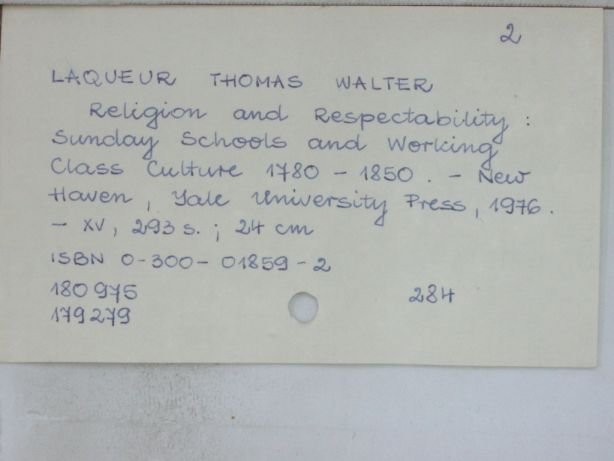 2
LAQUEUR THOMAS WALTER
Religion and Respectability :
Sunday Schools and Working
Class Culture 1780 - 1850 . - New
Haven , Yale University Press , 1976 .
- XV , 293 s. ; 24 cm
ISBN 0-300-01859-2
180975 284
179279